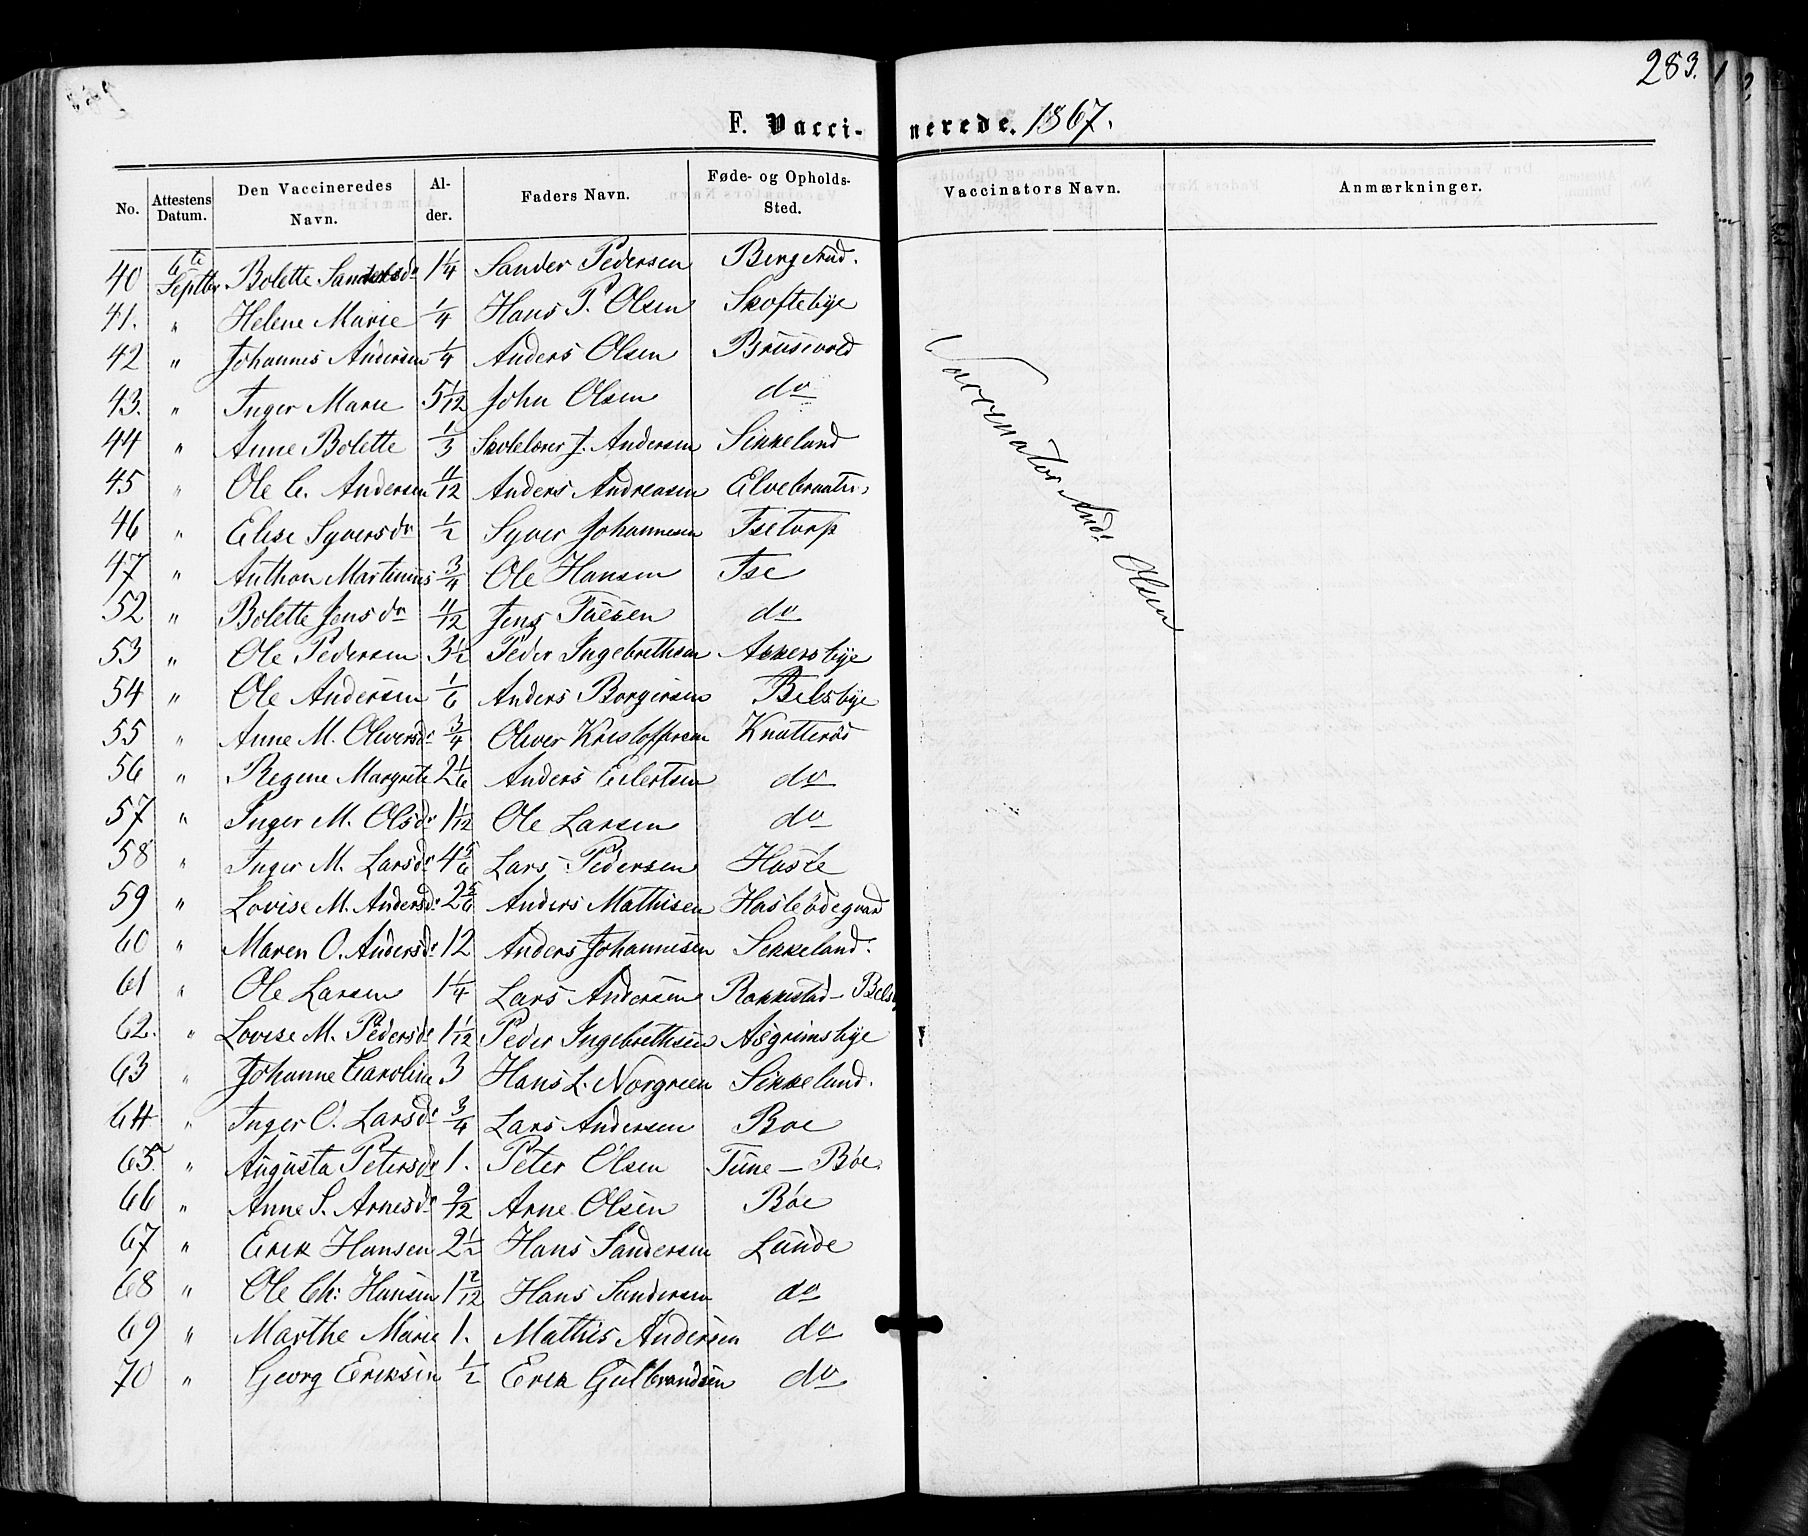 283.
F. Vaccinerede. 1867.
No. | Attestens Datum. | Den Vaccineredes Navn. | Alder. | Faders Navn. | Føde- og Opholds-Sted. | Vaccinators Navn. | Anmærkninger.
40 | 6te Septbr | Bolette Sandersdr | 1 1/4 | Sander Pedersen | Bergerud.
41. | " | Helene Marie | 1/4 | Hans P. Olsen | Skoftebye
42 | " | Johannes Andersen | 1/4 | Anders Olsen | Brusevold
43. | " | Inger Marie | 5 1/12 | John Olsen | do
44 | " | Anne Bolette | 1/3 | Skolelærer J. Andersen | Sikkeland
45 | " | Ole C. Andersen | 4/12 | Anders Andreasen | Elvebraatn
46 | " | Elise Syversdr | 1/2 | Syver Johannesen | Isetorp
47 | " | Anthon Martinius | 3/4 | Ole Hansen | Ise
52 | " | Bolette Jensdr | 4/12 | Jens Tuesen | do
53 | " | Ole Pedersen | 3 1/2 | Peder Ingebrethsen | Akkersbye
54 | " | Ole Andersen | 1/6 | Anders Borgersen | Belsbye
55 | " | Anne M. Oliversdr | 3/4 | Oliver Kristoffersen | Knatterød
56 | " | Regine Margrete | 2 1/6 | Anders Eilertsen | do
57 | " | Inger M. Olsdr | 1 1/12 | Ole Larsen | do
58 | " | Inger M. Larsdr | 4 5/6 | Lars Pedersen | Hasle
59 | " | Lovise M. Andersdr | 2 5/6 | Anders Mathisen | Hasleødegaard
60 | " | Maren O. Andersdr | 12 | Anders Johannesen | Sikkeland.
61 | " | Ole Larsen | 1 1/4 | Lars Andersen | Rakkestad - Belsb
62. | " | Lovise M. Pedersdr | 1 1/12 | Peder Ingebrethsen | Asgrimsbye
63 | " | Johanne Caroline | 3 | Hans L. Norgreen | Sikkeland.
64 | " | Inger O. Larsdr | 3/4 | Lars Andersen | Boe
65. | " | Augusta Petersdr | 1. | Peter Olsen | Tune - Bøe
66 | " | Anne S. Arnesdr | 9/12 | Arne Olsen | Bøe
67 | " | Erik Hansen | 2 1/2 | Hans Sandersen | Lunde
68 | " | Ole Ch: Hansen | 1 2/12 | Hans Sandersen | do
69 | " | Marthe Marie | 1. | Mathis Andersen | do
70 | " | Georg Eriksen | 1/2 | Erik Gulbrandsen | do
Vaccinator And: Olsen